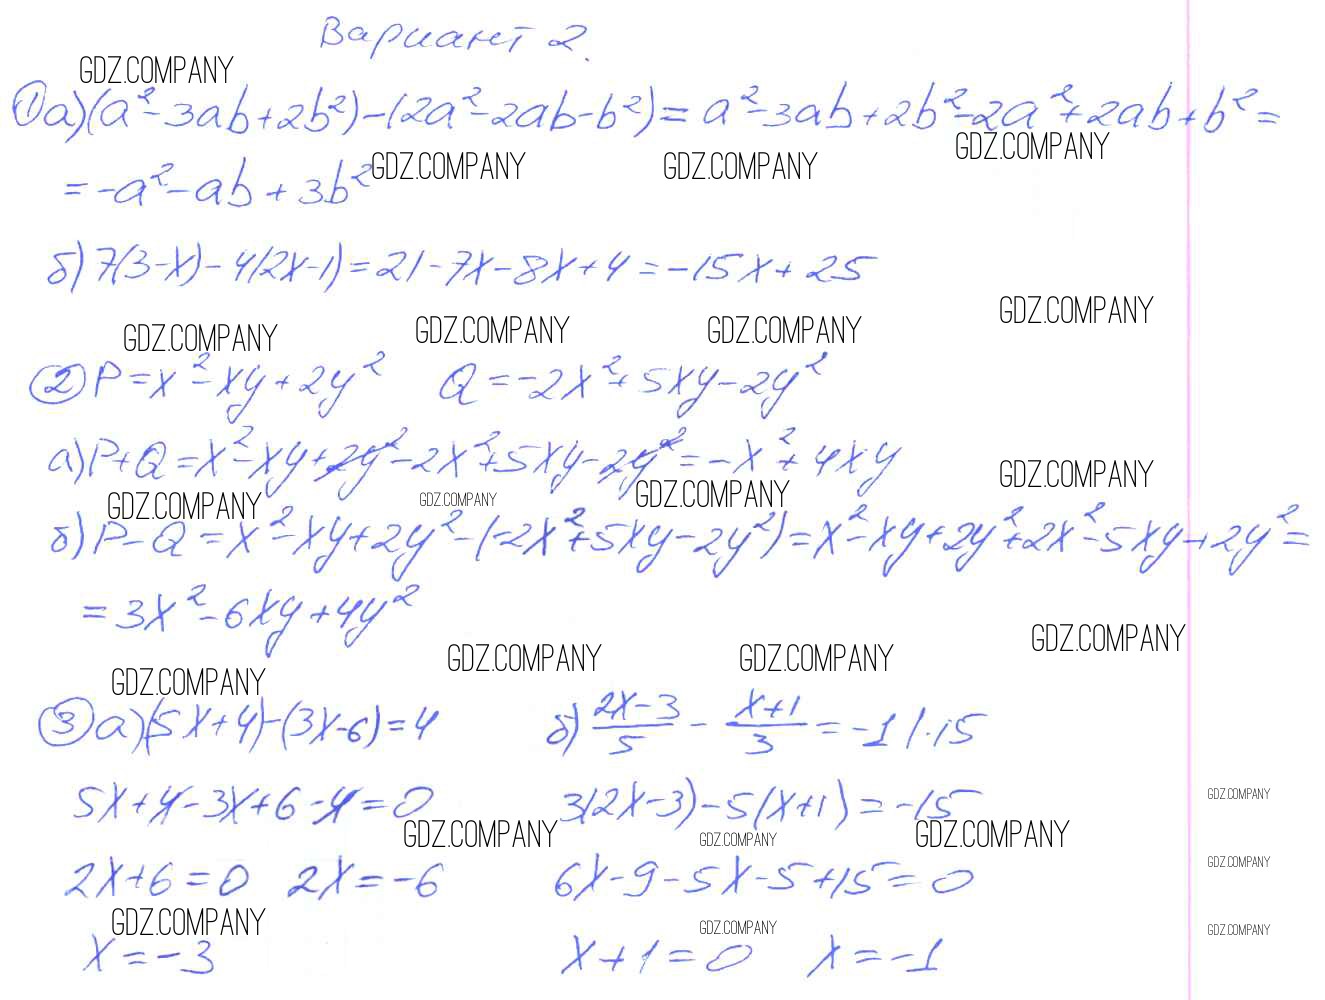 Вариант 2.
GDZ.COMPANY
① а) (a²-3ab+2b²)-(2a²-2ab-b²)=a²-3ab+2b²-2a²+2ab+b²=
GDZ.COMPANY GDZ.COMPANY GDZ.COMPANY
=-a²-ab+3b²
б) 7(3-x)-4(2x-1)=21-7x-8x+4=-15x+25
GDZ.COMPANY GDZ.COMPANY GDZ.COMPANY GDZ.COMPANY
② P=x²-xy+2y² Q=-2x²+5xy-2y²
а) P+Q=x²-xy+2y²-2x²+5xy-2y²=-x²+4xy
GDZ.COMPANY GDZ.COMPANY GDZ.COMPANY GDZ.COMPANY
б) P-Q=x²-xy+2y²-(-2x²+5xy-2y²)=x²-xy+2y²+2x²-5xy+2y²=
=3x²-6xy+4y²
GDZ.COMPANY GDZ.COMPANY GDZ.COMPANY GDZ.COMPANY
③ а) (5x+4)-(3x-6)=4 б) (2x-3)/5 - (x+1)/3 = -1 |·15
5x+4-3x+6-4=0 3(2x-3)-5(x+1)=-15
GDZ.COMPANY GDZ.COMPANY GDZ.COMPANY GDZ.COMPANY
2x+6=0 2x=-6 6x-9-5x-5+15=0
GDZ.COMPANY
GDZ.COMPANY GDZ.COMPANY GDZ.COMPANY
x=-3 x+1=0 x=-1